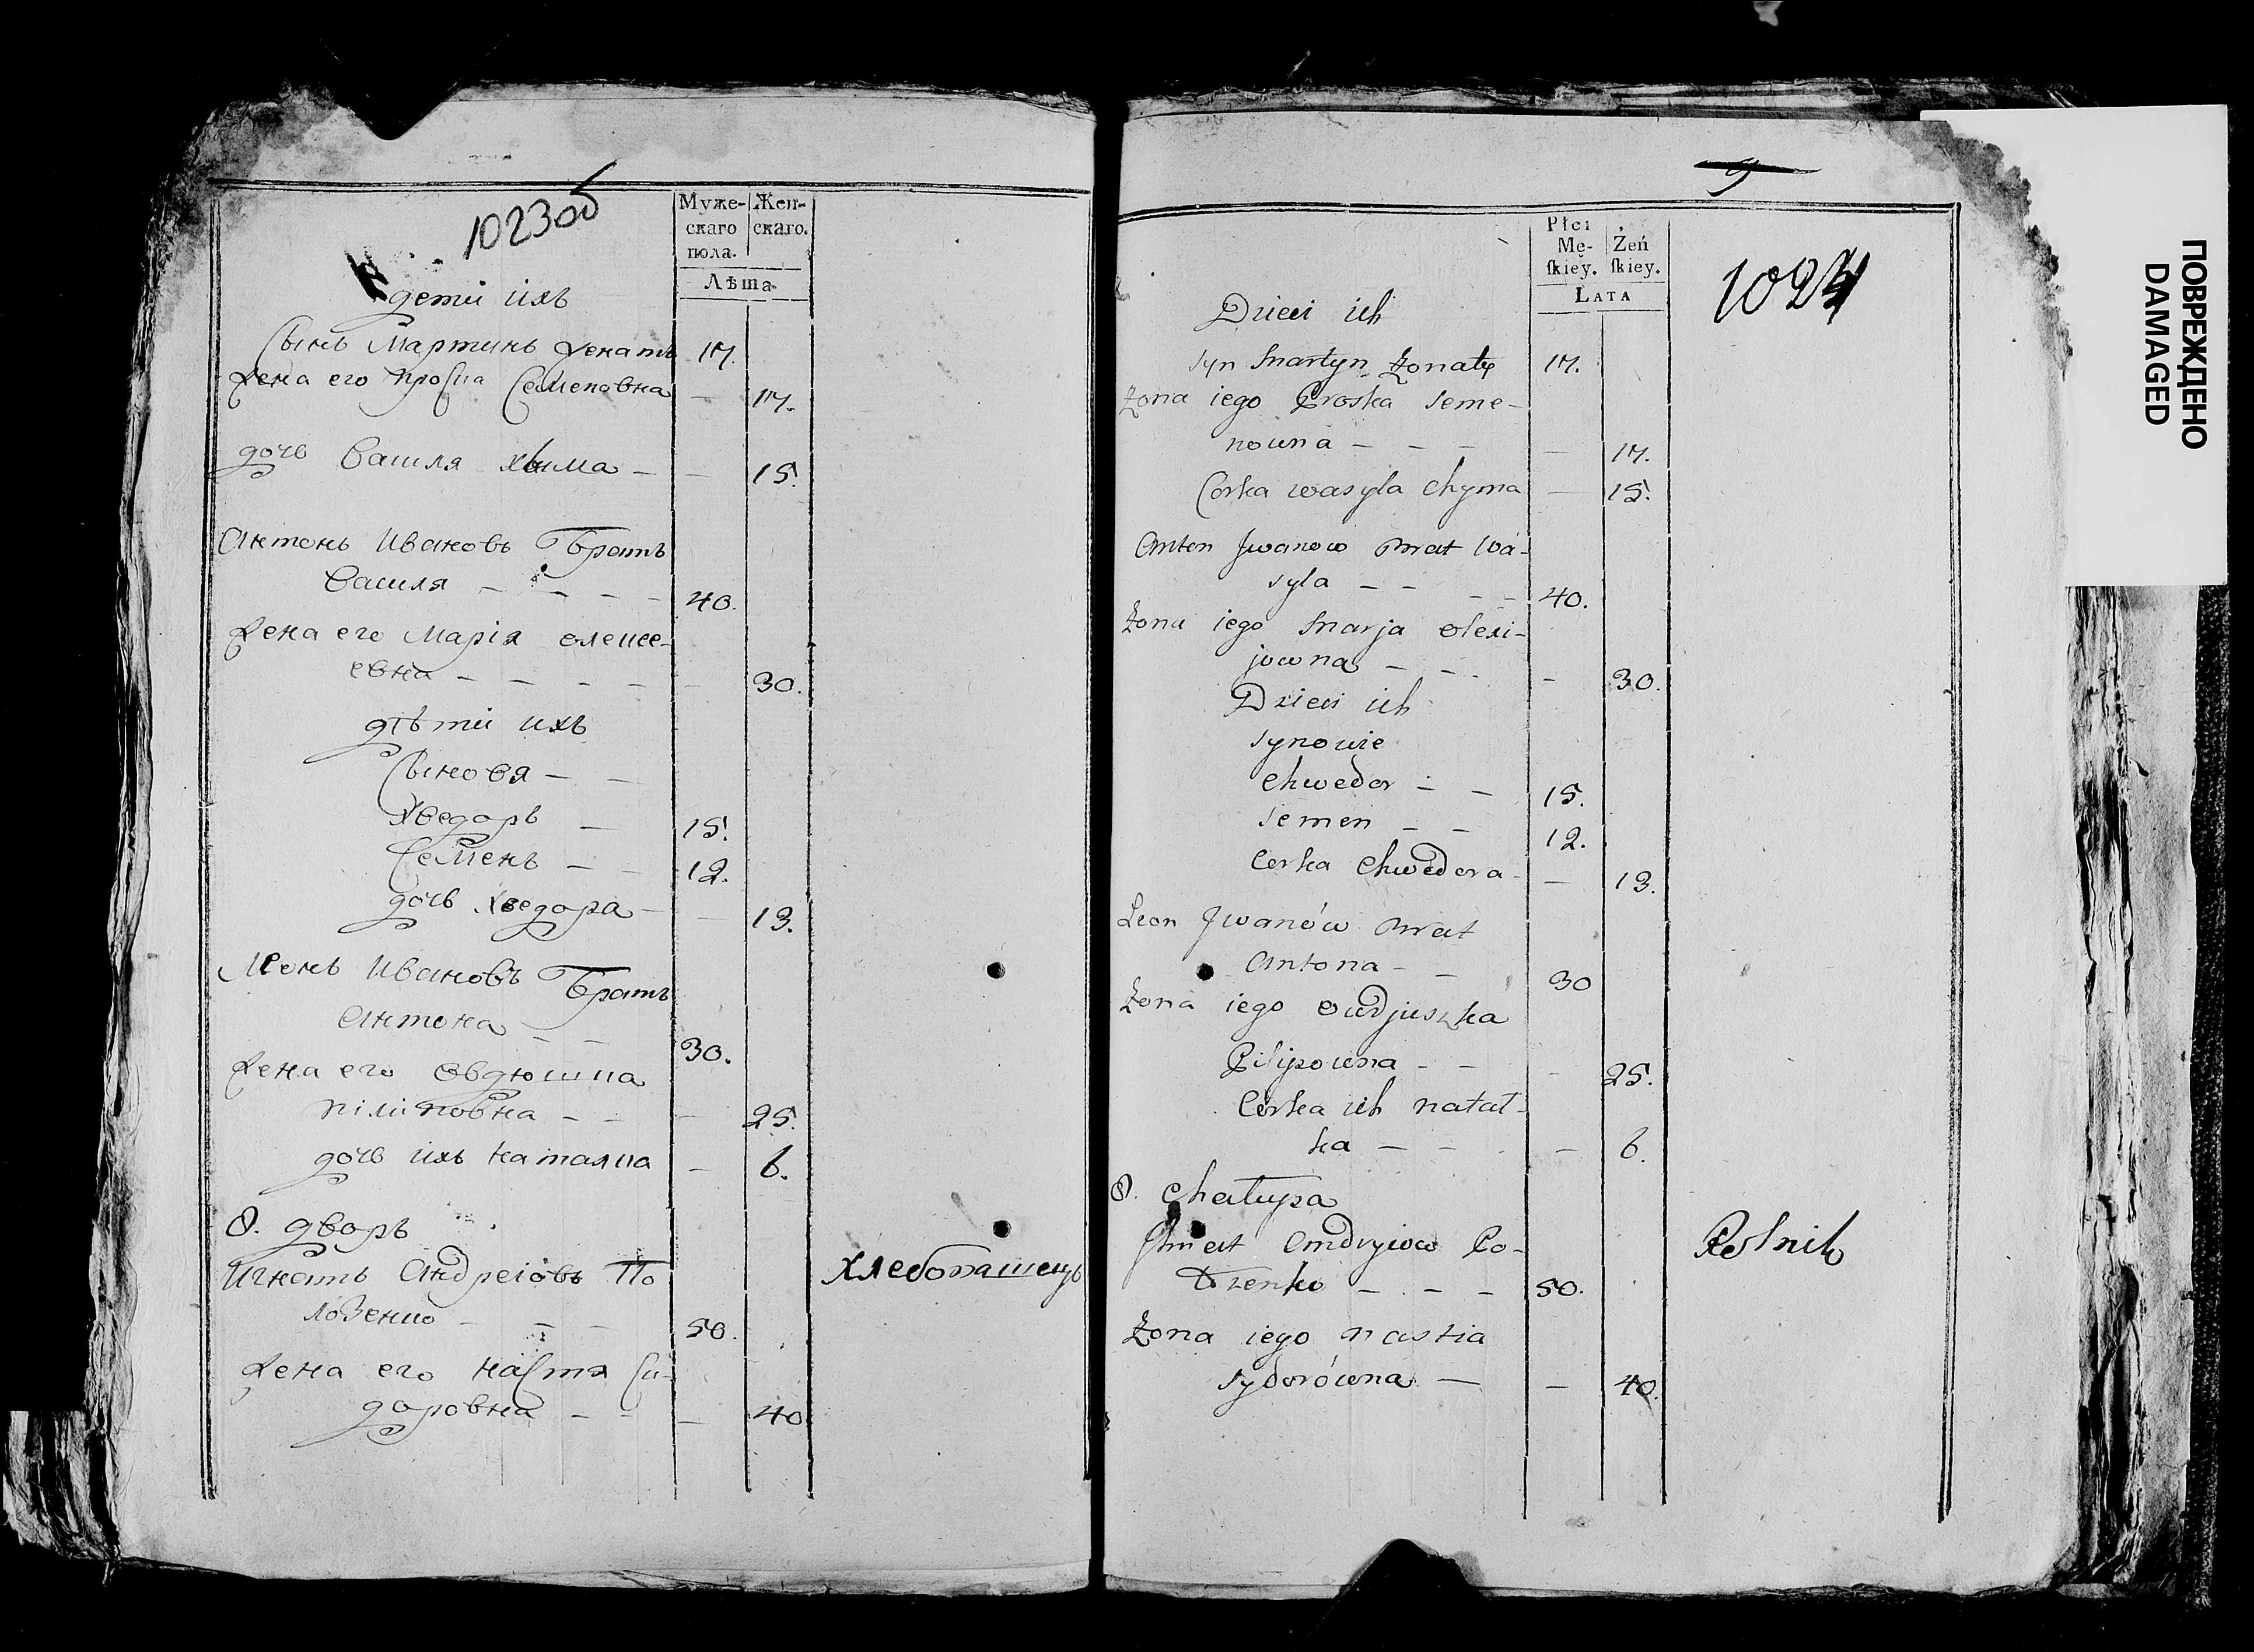 1023об
Муже-
скаго
пола.
Жен-
скаго.
Лѣта.
дети ихъ
Сынъ Мартинъ женатъ 17.
жена его Проска Семеновна — 17.
дочь Василя Хвима — — 15.
Антонъ Ивановъ Братъ
Василя — — — — 40.
жена его Марія олексе-
евна — — — — — 30.
дѣти ихъ
Сыновя — —
Хведоръ — 15.
Семенъ — — 12.
дочь Хведора — — 13.
Леонъ Ивановъ Братъ
Антона — — 30.
жена его Овдюшка
піліповна — — — 25.
дочь ихъ Наталка — 6.
8. дворъ
Игнатъ Андреіовъ По
лозенко — — — 50. хлебопашецъ
жена его Настя Си-
доровна — — — 40
9
Płci
Mę-
ſkiey.
Żeń
ſkiey.
LATA
1024
Dzieci ich
syn Martyn żonaty 17.
żona iego Proska Seme-
nowna — — — — 17.
Corka wasyla Chyma — 15.
Anton Jwanow Brat Wa-
syla — — — — 40.
żona iego Marja olexi-
jowna — — — 30.
Dzieci ich
synowie
Chwedor — — 15.
Semen — — 12.
Corka Chwedora — — 13.
Leon Jwanów Brat
Antona — — 30
żona iego owdjuszka
Pilipowna — — — 25.
Corka ich natał-
ka — — — 6.
8. Chałupa
Jhnat Andryiow Po-
łozenko — — — 50. Rolnik
żona iego nastia
sydorówna — — 40.
ПОВРЕЖДЕНО
DAMAGED